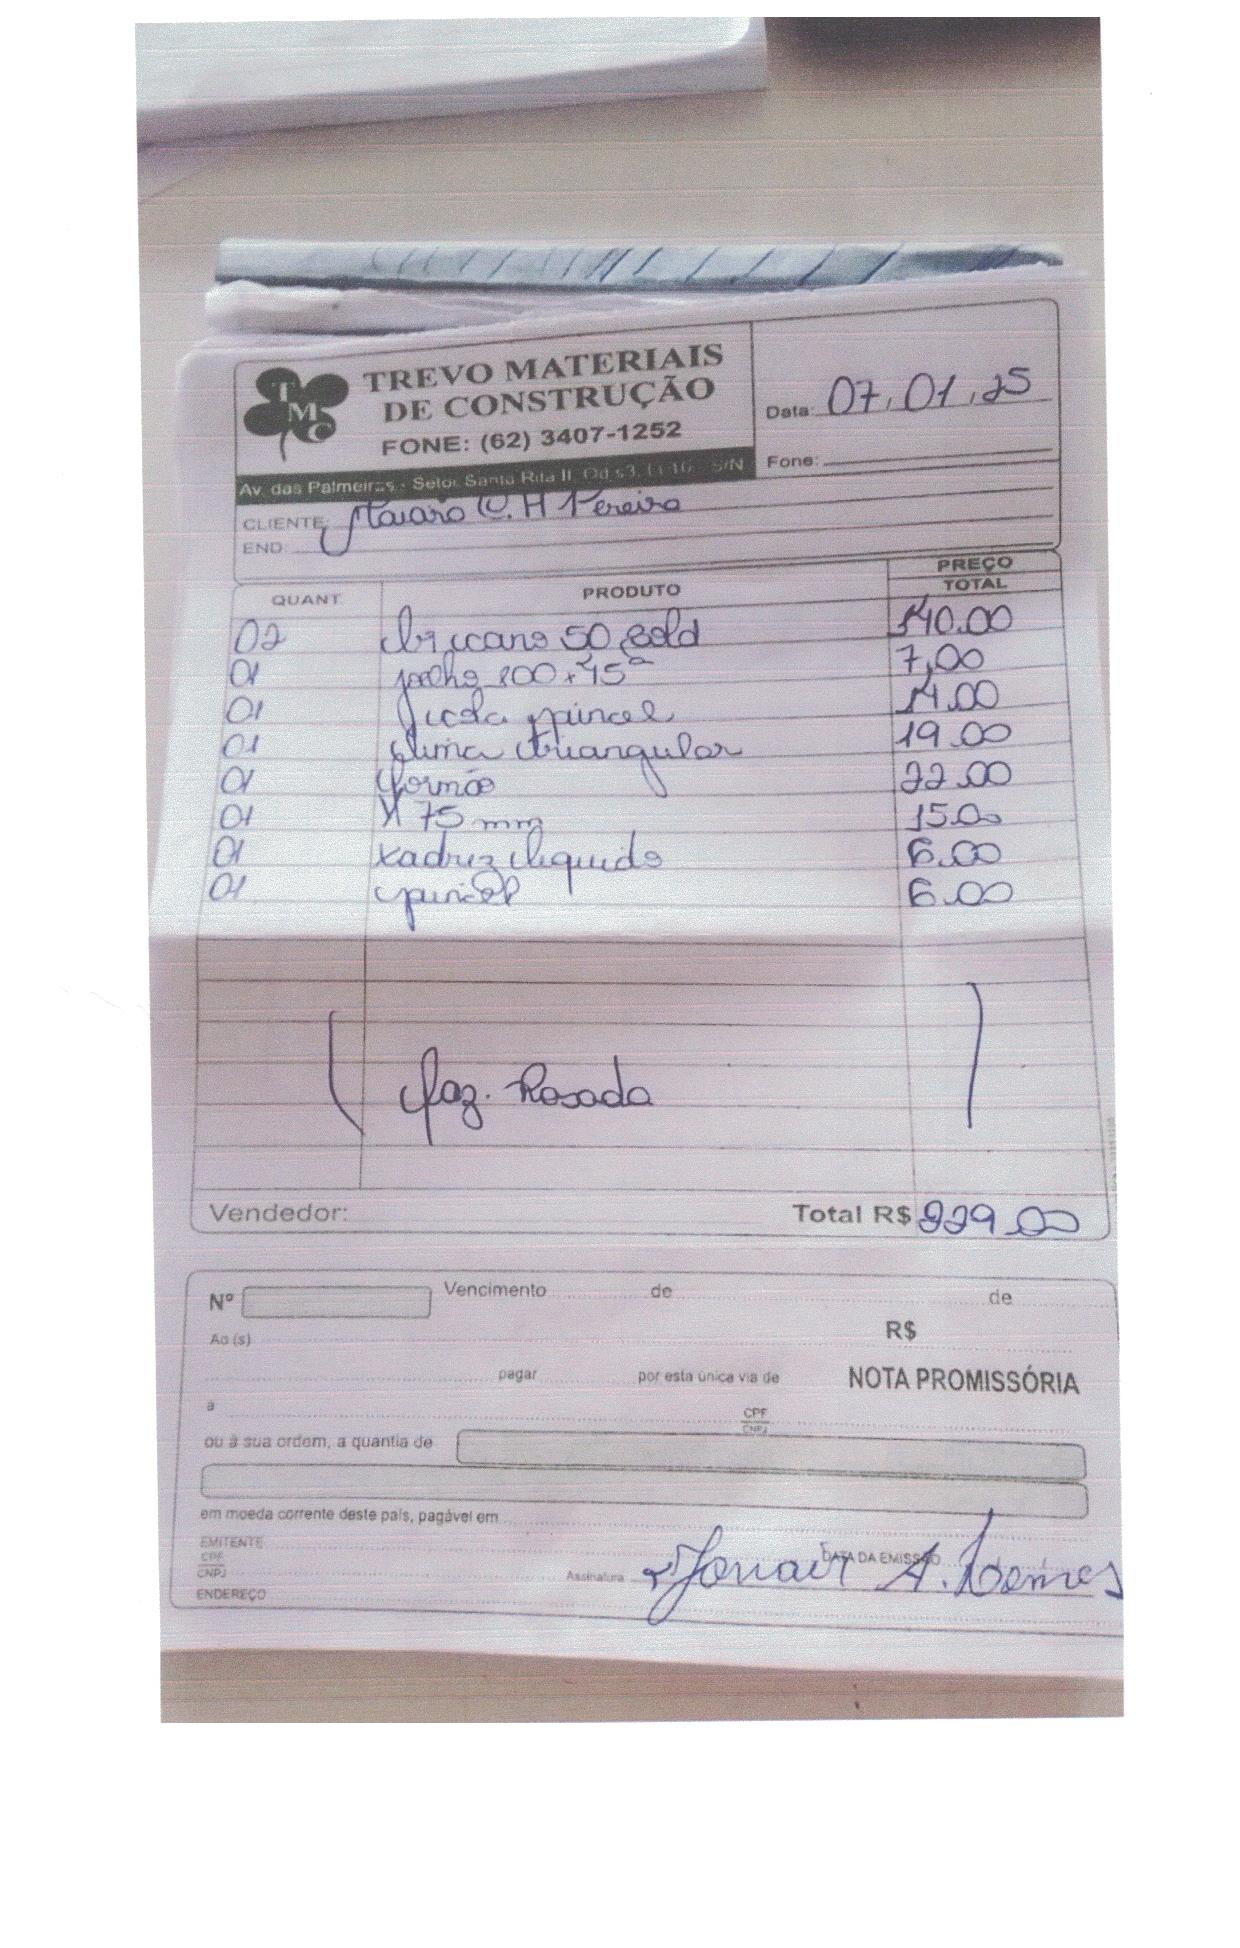 TMC
TREVO MATERIAIS
DE CONSTRUÇÃO
FONE: (62) 3407-1252
Av. das Palmeiras - Setor Santa Rita II, Qd 53, Lt 16 S/N
Data: 07,01,25
Fone:
CLIENTE: C. H Pereira
END:
QUANT. PRODUTO PREÇO TOTAL
02 50 140.00
01 joelho 100x45ª 7,00
01 pincel 14.00
01 Lima triangular 19.00
01 formão 22.00
01 Y 75 mm 15.00
01 xadrez liquido 6.00
01 pincel 6.00
Faz. Rosada
Vendedor: Total R$ 229.00
Nº Vencimento de de
Ao (s) R$
pagar por esta única via de NOTA PROMISSÓRIA
a CPF CNPJ
ou à sua ordem, a quantia de
em moeda corrente deste país, pagável em
EMITENTE DATA DA EMISSÃO
CPF CNPJ Assinatura A.
ENDEREÇO